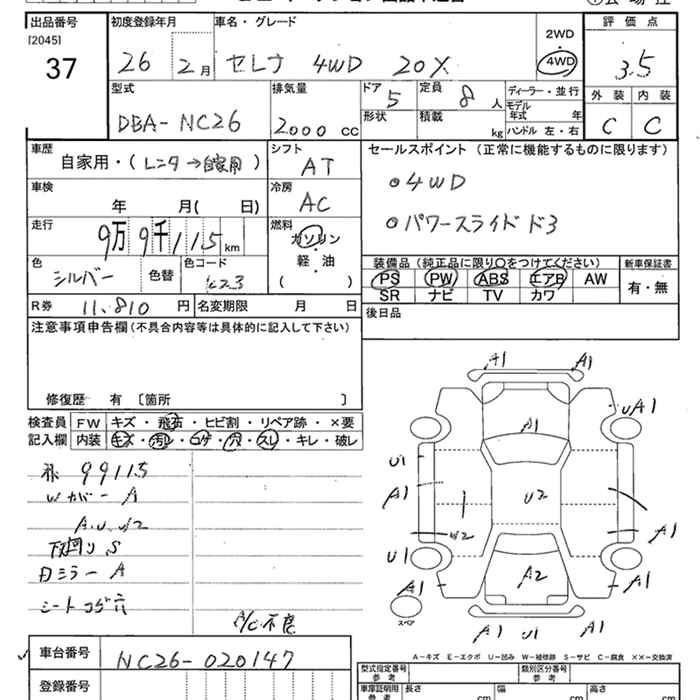 出品番号
[2045]
37
初度登録年月
26 2月
車名・グレード
セレナ 4WD 20X
2WD
4WD
評価点
3.5
外装 内装
C C
型式
DBA-NC26
排気量
2000 cc
ドア
5
定員
8人
形状
積載
kg
ディーラー・並行
モデル年式 年
ハンドル 左・右
車歴
自家用・(レンタ→自家用)
シフト
AT
車検
年 月( 日)
冷房
AC
走行
9万9千115km
燃料
ガソリン
・
軽・油
( )
色
シルバー
色替
色コード
K23
R券 11,810円
名変期限 月 日
セールスポイント(正常に機能するものに限ります)
●4WD
●パワースライドド3
装備品(純正品に限り○をつけてください)
PS PW ABS エアB AW
SR ナビ TV カワ
新車保証書
有・無
後日品
注意事項申告欄(不具合内容等は具体的に記入して下さい)
修復歴 有 〔箇所 〕
検査員記入欄
FW キズ・飛石・ヒビ割・リペア跡・×要
内装 キズ・汚レ・コゲ・穴・スレ・キレ・破レ
99115
Wカバー A
A.U.W2
下廻り S
Dミラー A
シートコゲ穴
A/C不良
A1 A1
A1
UA1
U1
A1
U2
W2
A1
U1
A1
A2
A1
A1 U1 A1
スペア
A-キズ E-エクボ U-凹み W-補修跡 S-サビ C-腐食 XX-交換済
車台番号
NC26-020147
登録番号
型式指定番号
参考
類別区分番号
参考
車庫証明用
参考
長さ cm
幅 cm
高さ cm